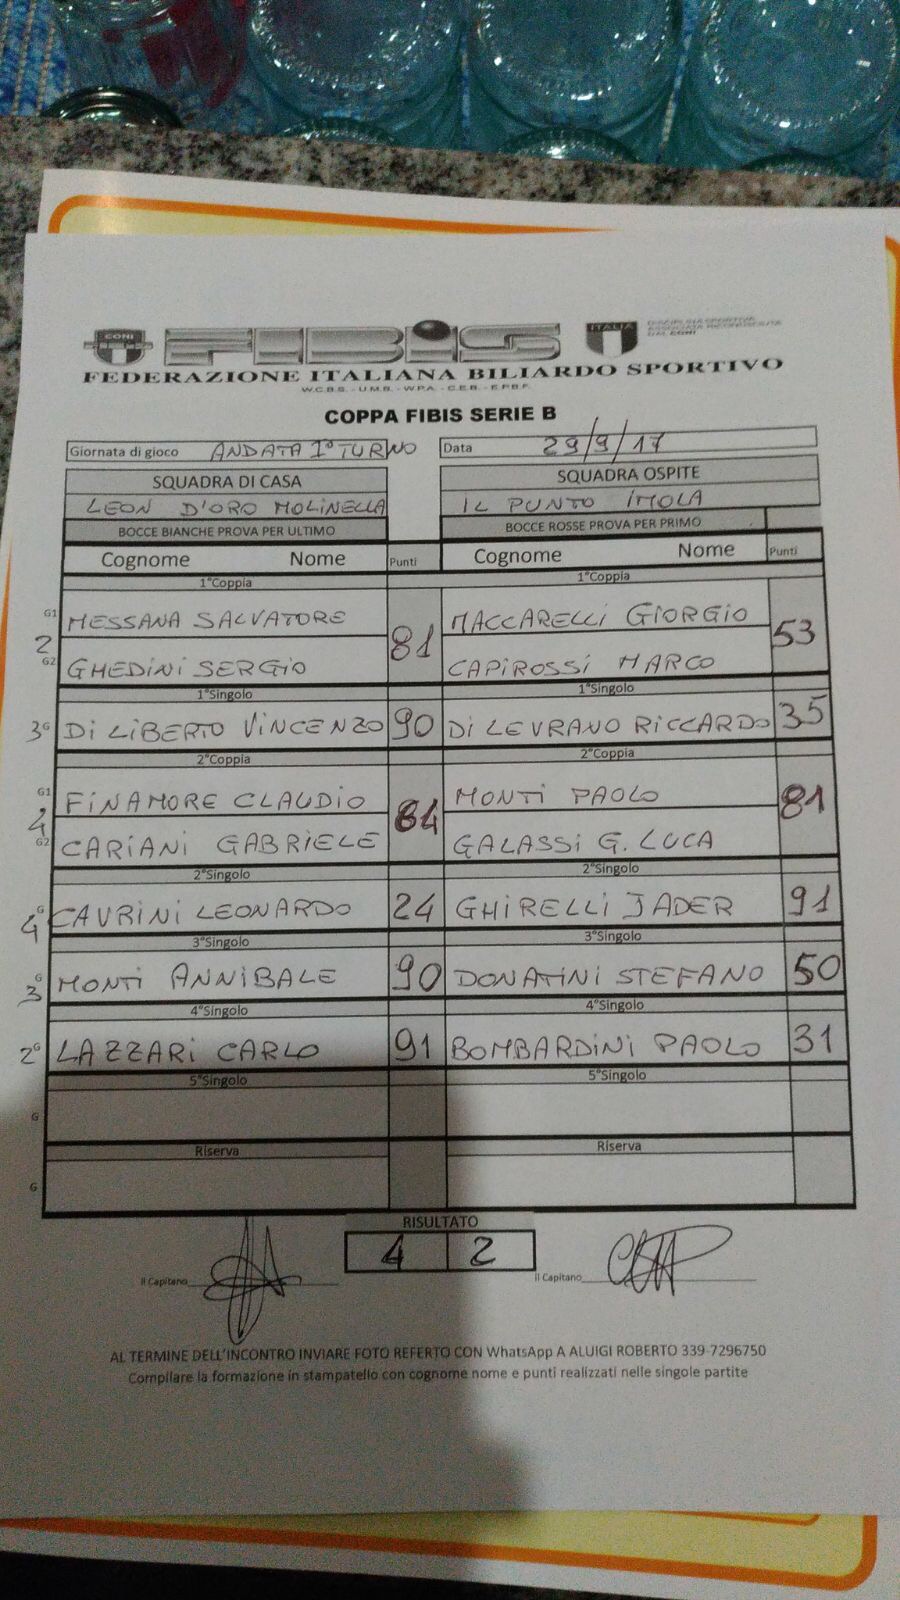 CONI
FIBiS
ITALIA
FEDERAZIONE ITALIANA BILIARDO SPORTIVO
W.C.B.S. - U.M.B. - W.P.A. - C.E.B. - E.P.B.F.
COPPA FIBIS SERIE B
Giornata di gioco ANDATA 1° TURNO Data 29/9/17
SQUADRA DI CASA SQUADRA OSPITE
LEON D'ORO MOLINELLA IL PUNTO IMOLA
BOCCE BIANCHE PROVA PER ULTIMO BOCCE ROSSE PROVA PER PRIMO
Cognome Nome Punti Cognome Nome Punti
1°Coppia 1°Coppia
G1 MESSANA SALVATORE MACCARELLI GIORGIO
2 81 53
G2 GHEDINI SERGIO CAPIROSSI MARCO
1°Singolo 1°Singolo
3 G DI LIBERTO VINCENZO 90 DI LEVRANO RICCARDO 35
2°Coppia 2°Coppia
G1 FINAMORE CLAUDIO MONTI PAOLO
4 64 81
G2 CARIANI GABRIELE GALASSI G. LUCA
2°Singolo 2°Singolo
G 4 CAVRINI LEONARDO 24 GHIRELLI JADER 91
3°Singolo 3°Singolo
G 3 MONTI ANNIBALE 90 DONATINI STEFANO 50
4°Singolo 4°Singolo
2 G LAZZARI CARLO 91 BOMBARDINI PAOLO 31
5°Singolo 5°Singolo
G
Riserva Riserva
G
RISULTATO
4 2
Il Capitano Il Capitano
AL TERMINE DELL'INCONTRO INVIARE FOTO REFERTO CON WhatsApp A ALUIGI ROBERTO 339-7296750
Compilare la formazione in stampatello con cognome nome e punti realizzati nelle singole partite